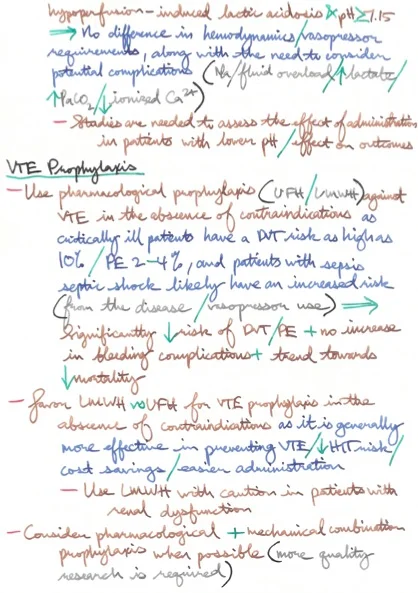 hypoperfusion-induced lactic acidosis × pH ≥ 7.15
⇒ No difference in hemodynamics/vasopressor
requirements, along with the need to consider
potential complications (Na/fluid overload/↑lactate/
↑PaCO2/↓ionized Ca2+)
- Studies are needed to assess the effect of administration
in patients with lower pH/effect on outcomes
VTE Prophylaxis
- Use pharmacological prophylaxis (UFH/LMWH) against
VTE in the absence of contraindications as
critically ill patients have a DVT risk as high as
10%/PE 2-4%, and patients with sepsis
septic shock likely have an increased risk
(from the disease/vasopressor use) ⇒
Significantly ↓risk of DVT/PE + no increase
in bleeding complications + trend towards
↓mortality
- Favor LMWH vs UFH for VTE prophylaxis in the
absence of contraindications as it is generally
more effective in preventing VTE/↓HIT risk/
cost savings/easier administration
- Use LMWH with caution in patients with
renal dysfunction
- Consider pharmacological + mechanical combination
prophylaxis when possible (more quality
research is required)